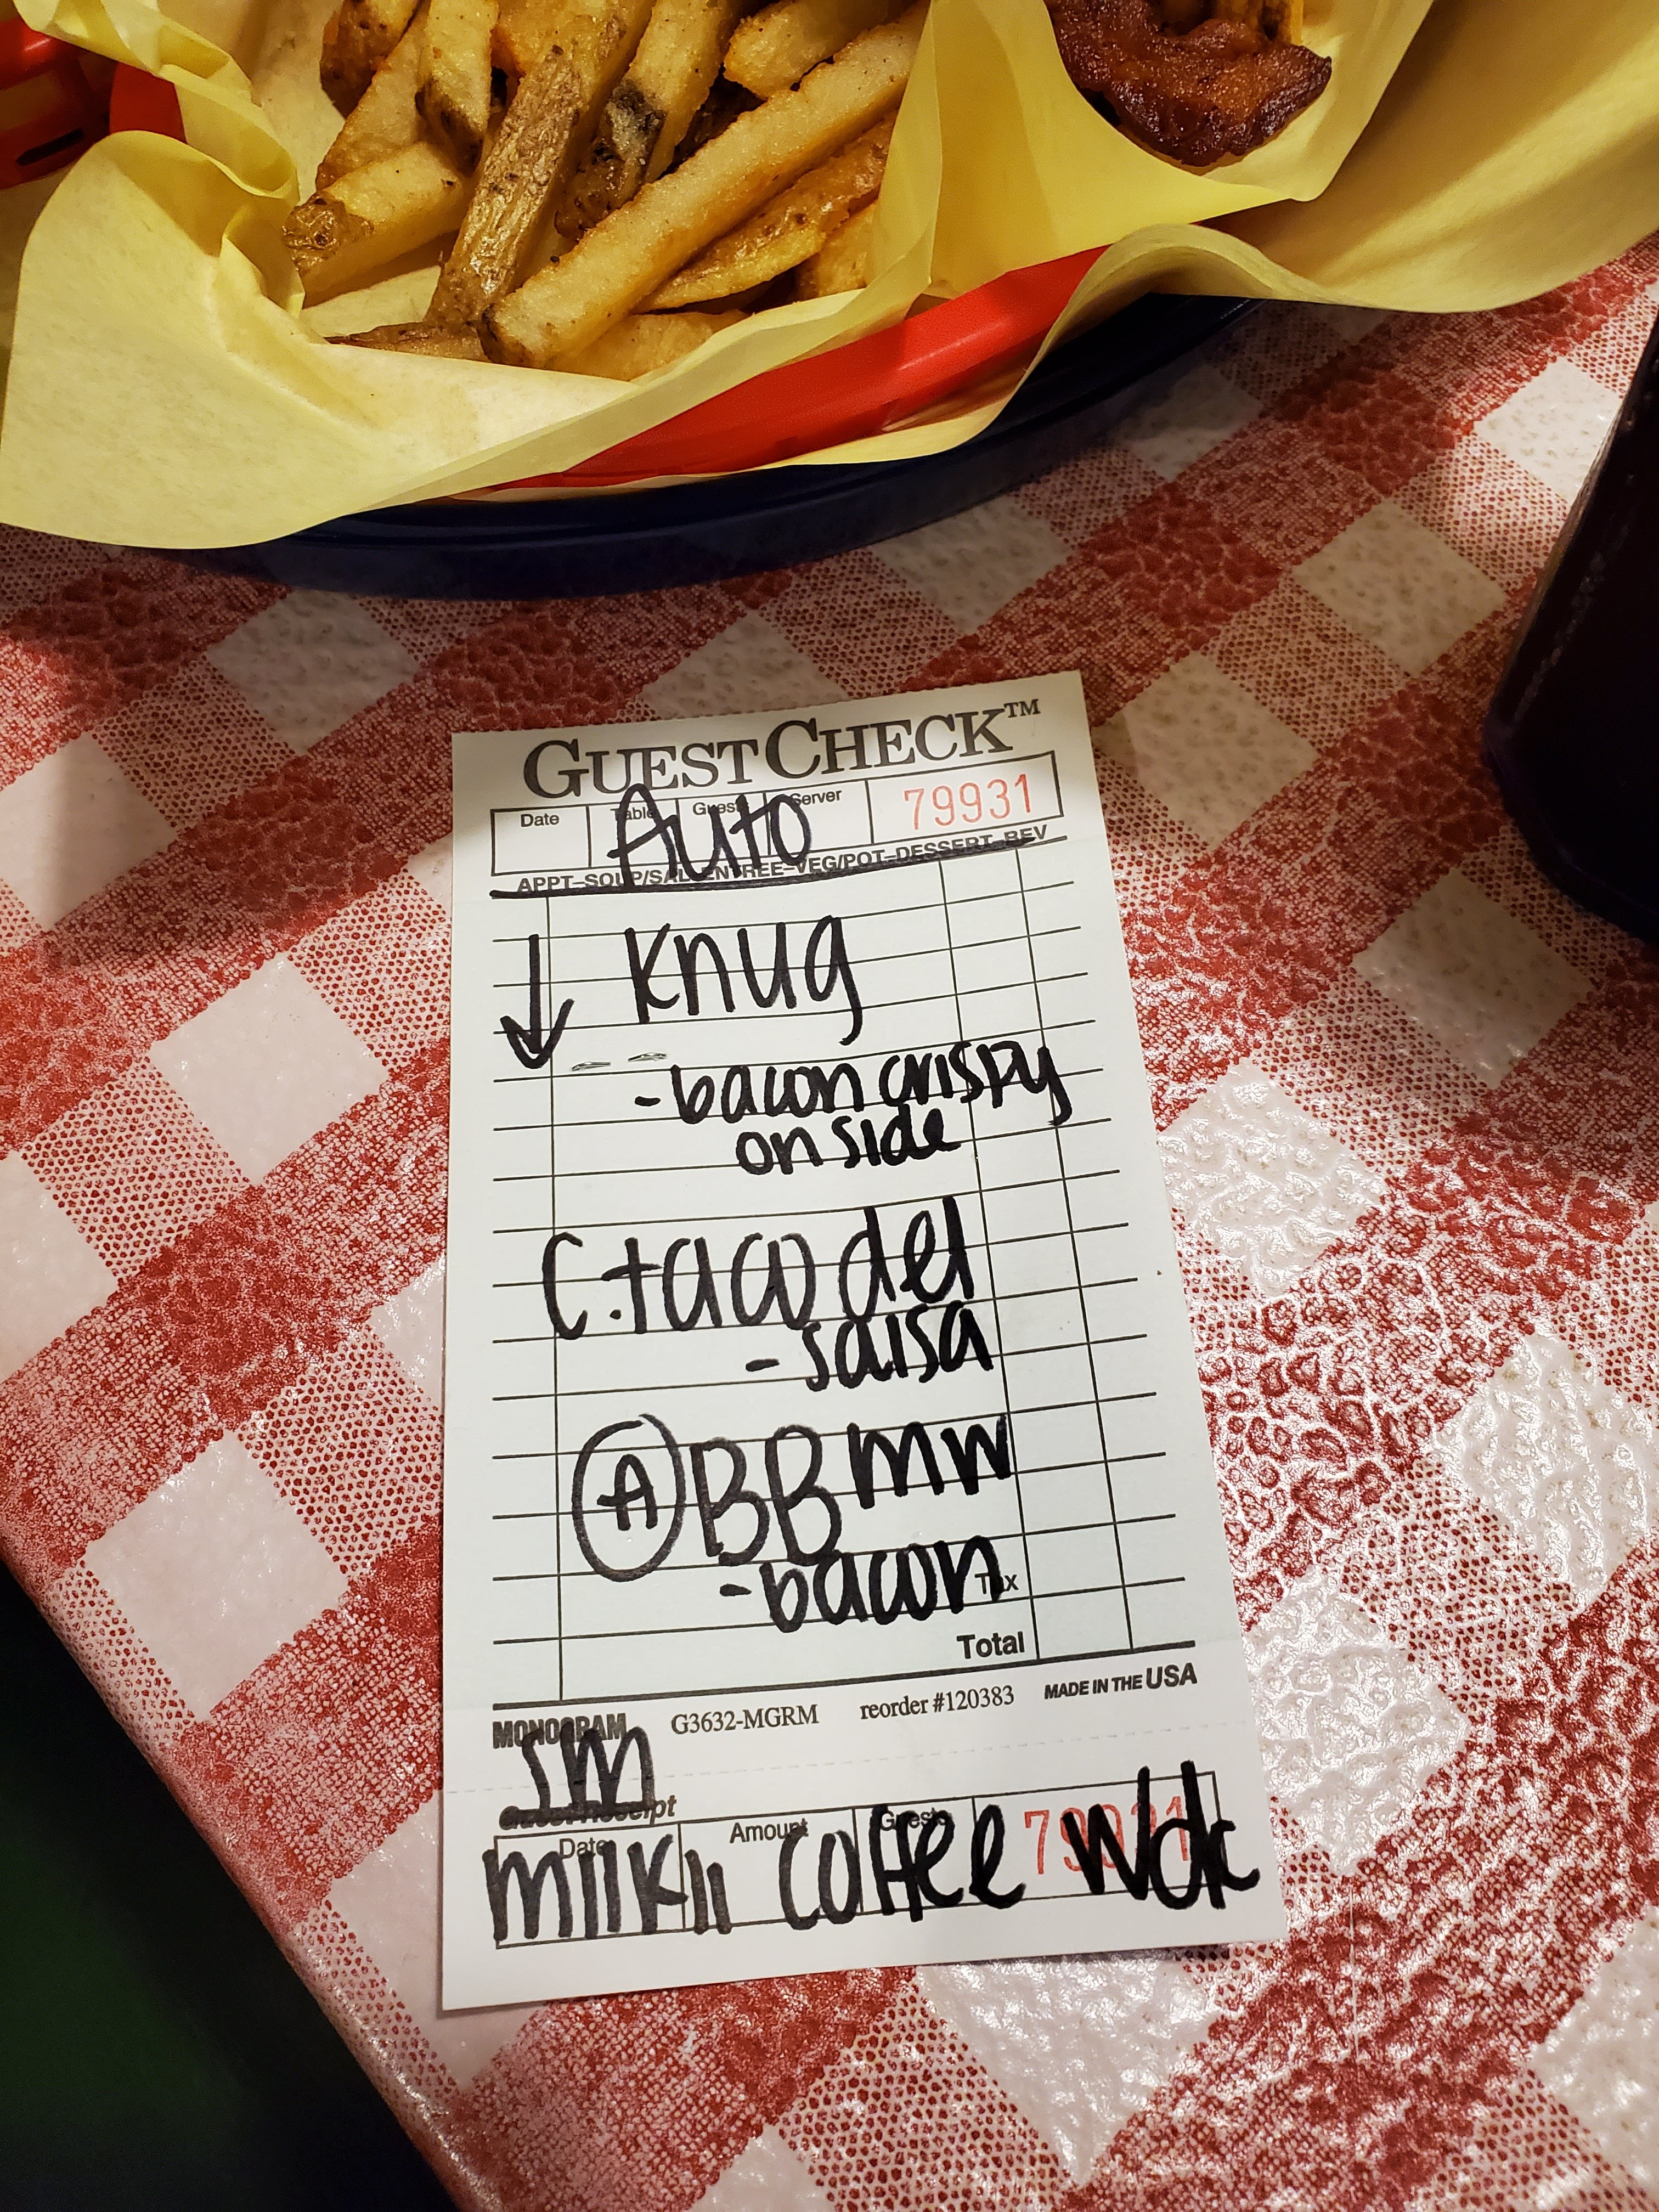 GUEST CHECK™
Date Table Guests Server 79931
Auto
APPT–SOUP/SAL–ENTREE–VEG/POT–DESSERT–BEV
Knug
-bacon crispy
on side
C.taco del
-salsa
A BB mw
-bacon
Tax
Total
MONOGRAM G3632-MGRM reorder #120383 MADE IN THE USA
sm
Guest Receipt
Date Amount Guests 79931
milk coffee wdk